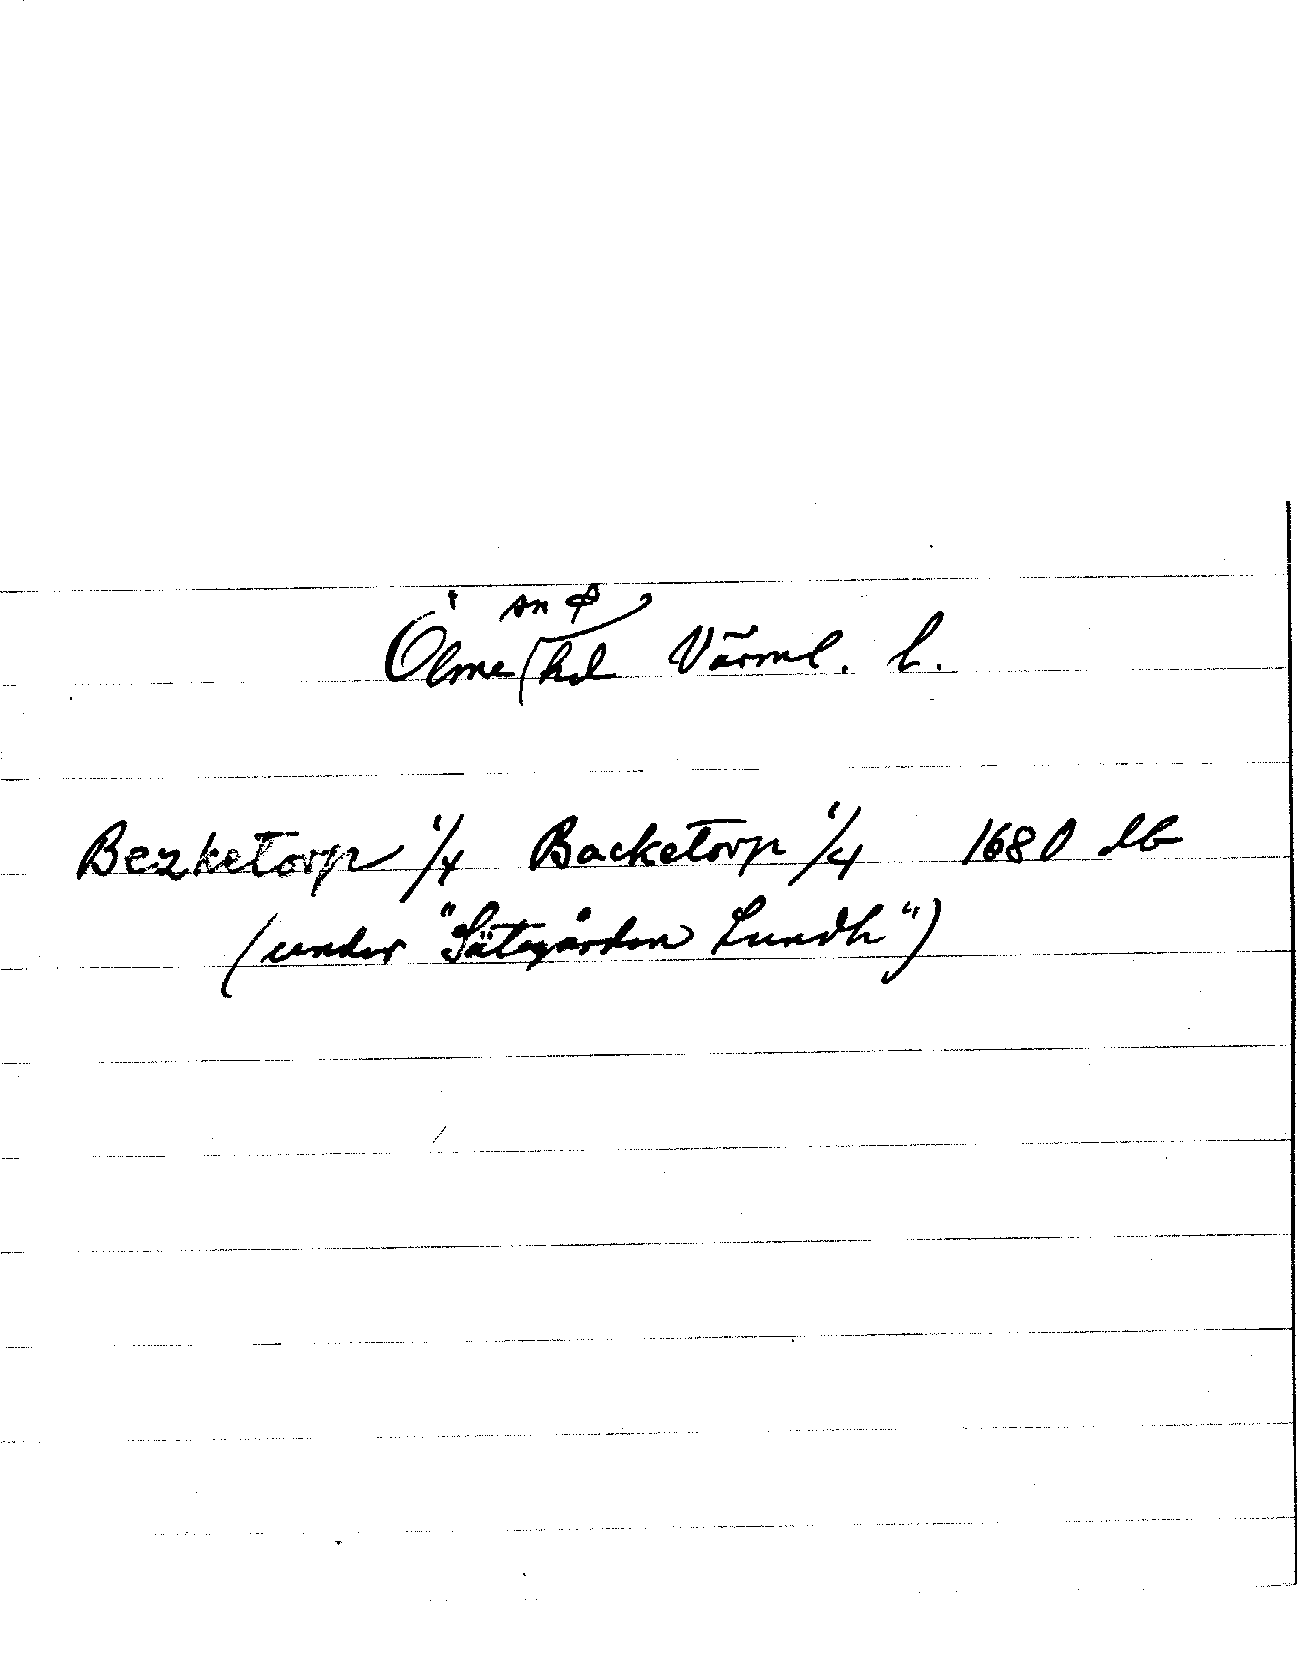 sn
Ölme hd Värml. l.
Bezketorp 1/4 Backetorp 1/4 1680 lb
(under "Sätegården Lundh")